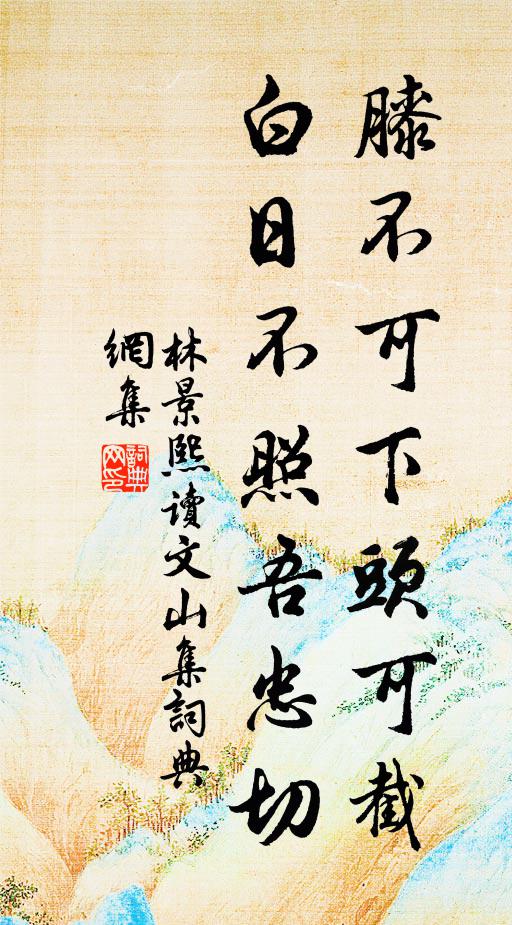 膝不可下頭可截
白日不照吾忠切
林景熙讀文山集詞典
網集
詞典
网印